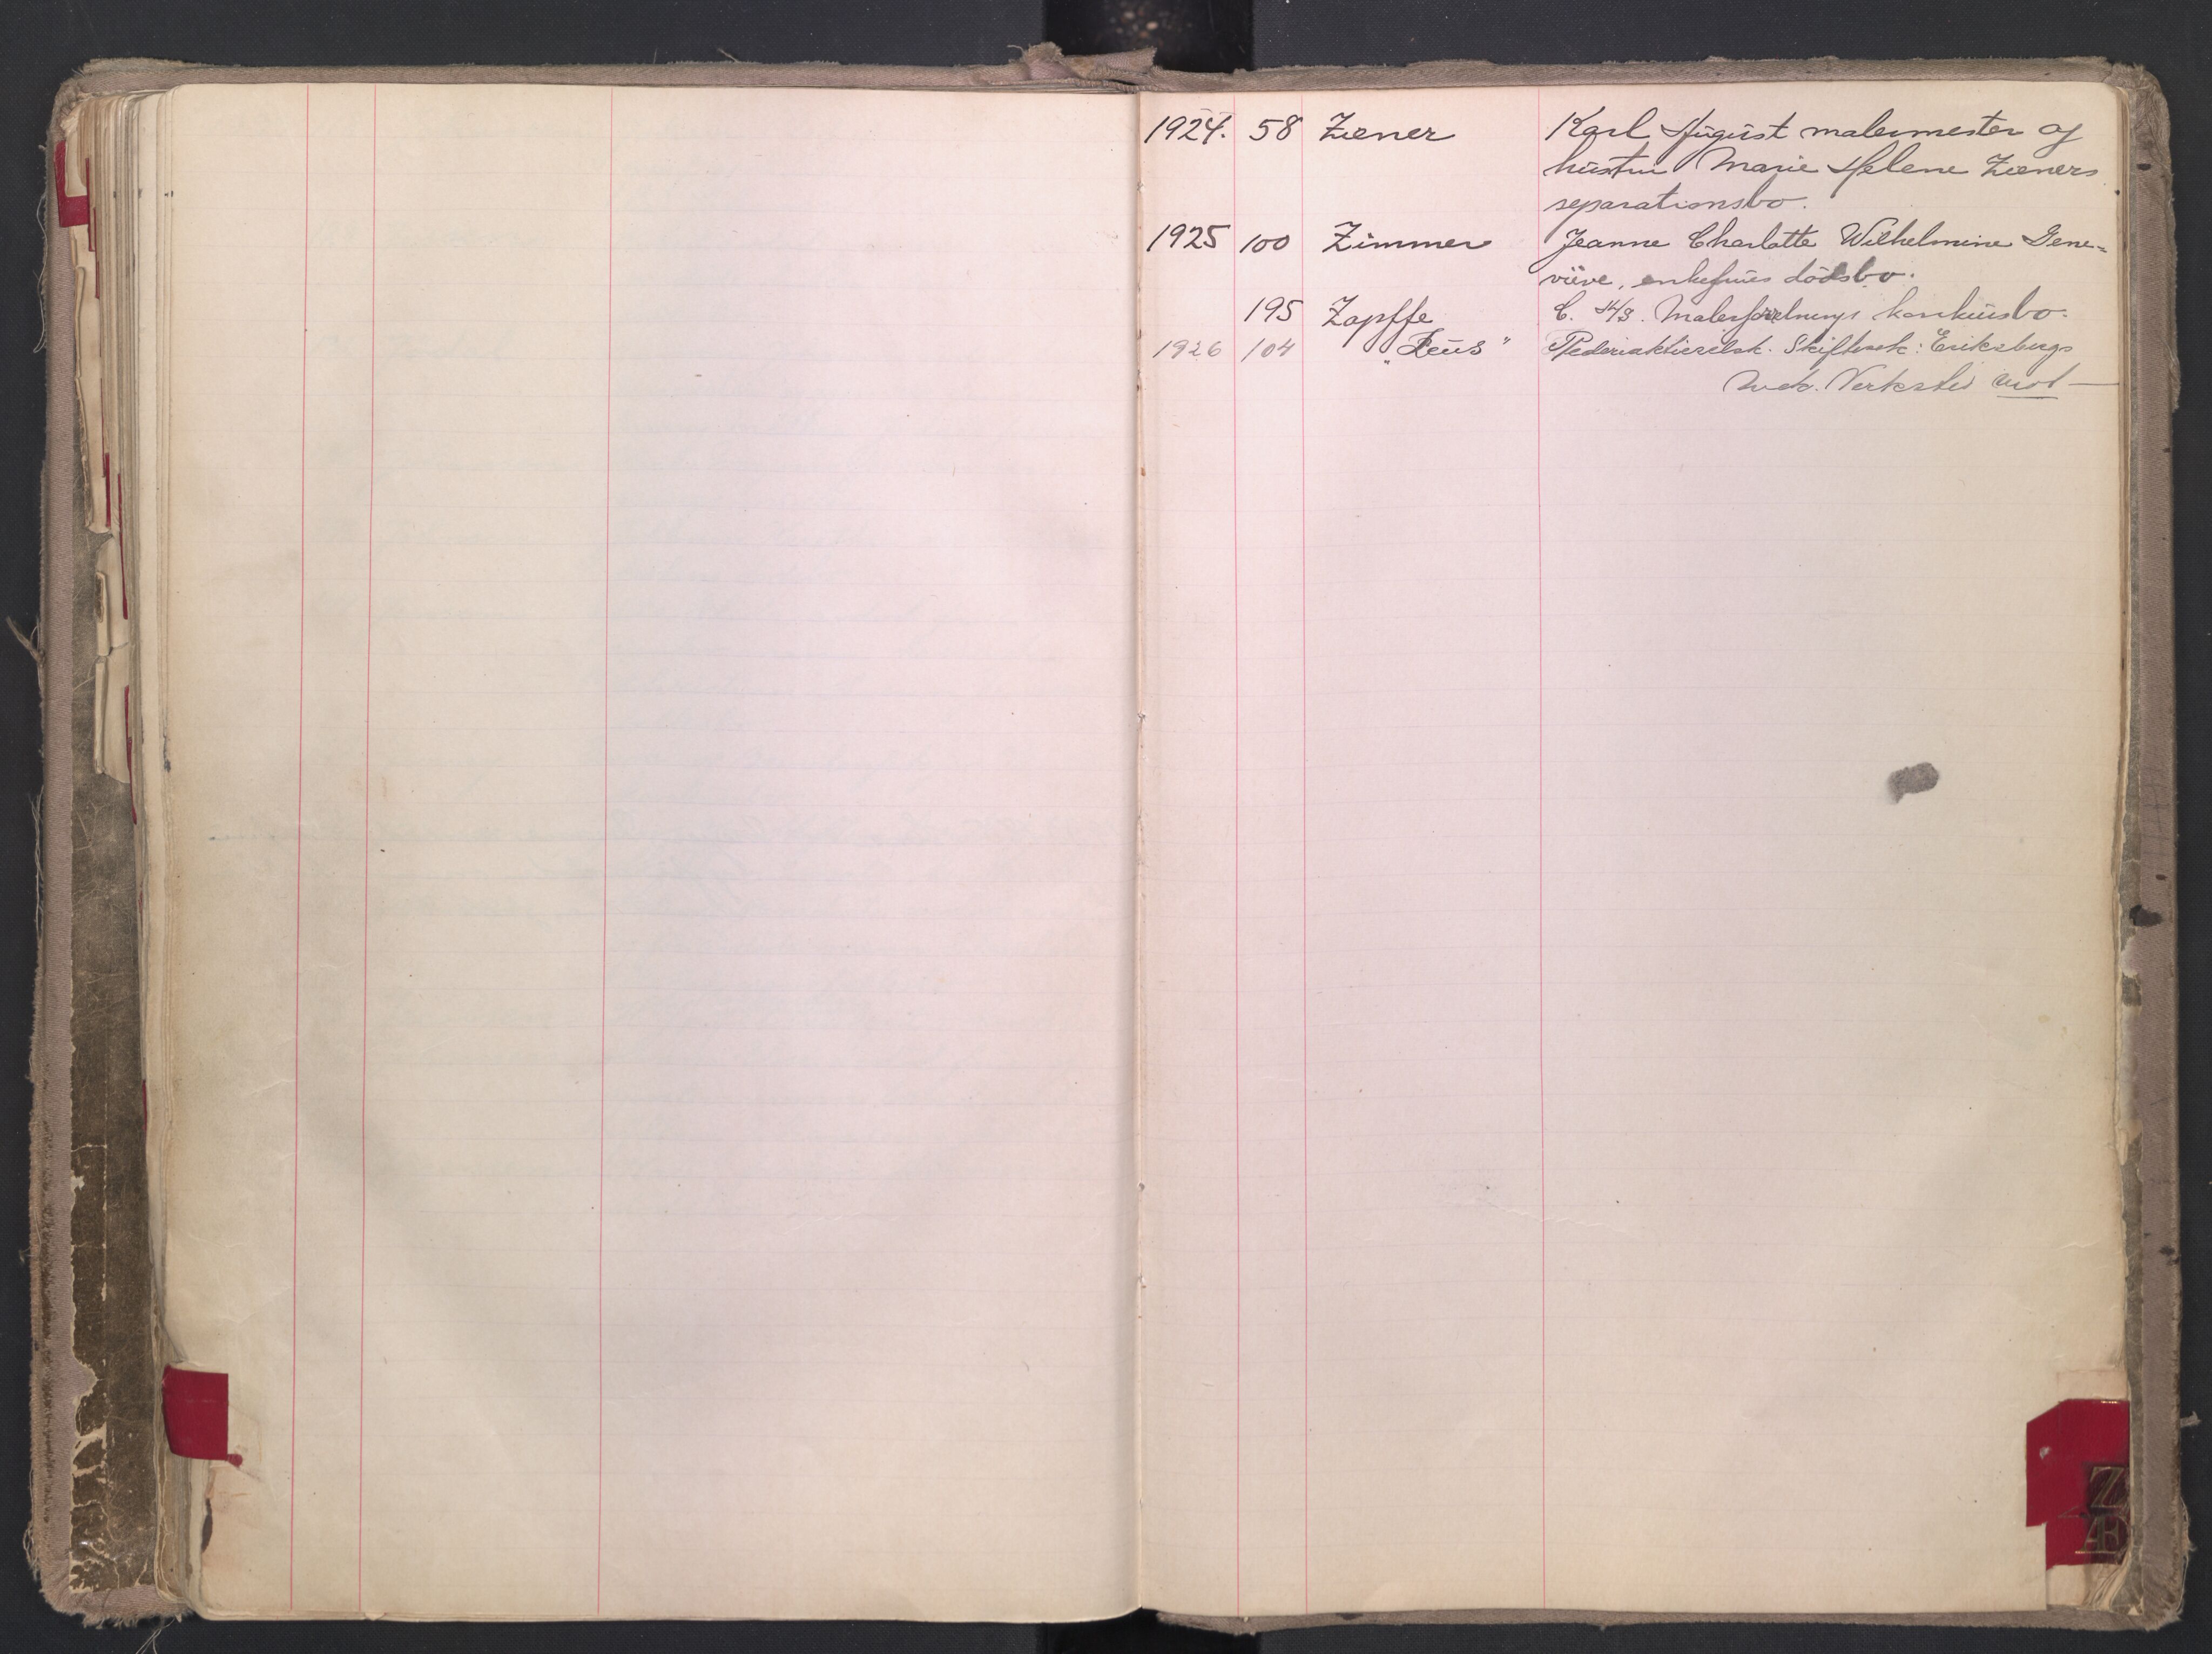 1924. 58 Zæner Karl August malermester og
hustru Marie Helene Zæners
separationsbo.
1925 100 Zimmer Jeanne Charlotte Wilhelmine Gene-
viève, enkefrues dødsbo.
195 Zapffe C. A/S. Malerforretnings konkursbo.
1926 104 "Zeus" Rederiaktieselsk. Skiftesak: Eriksbergs
mek. Verksted mot —
Z
Æ